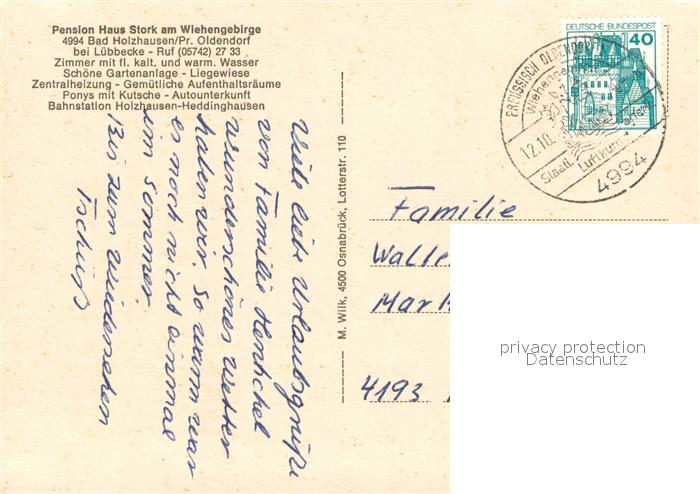 Pension Haus Stork am Wiehengebirge
4994 Bad Holzhausen/Pr. Oldendorf
bei Lübbecke - Ruf (05742) 27 33
Zimmer mit fl. kalt. und warm. Wasser
Schöne Gartenanlage - Liegewiese
Zentralheizung - Gemütliche Aufenthaltsräume
Ponys mit Kutsche - Autounterkunft
Bahnstation Holzhausen-Heddinghausen
Viele liebe Urlaubsgrüße
von Familie Henschel
wunderschönes Wetter
haben wir. So warm war
es noch nicht einmal
im Sommer.
Bis zum wiedersehen
Tschüß
M. Wilk, 4500 Osnabrück, Lotterstr. 110
DEUTSCHE BUNDESPOST
40
PREUSSISCH OLDENDORF
Wiehengebirge
12.10.
Staatl.
Luftkurort
4994
Familie
Walte
Mar
4193
privacy protection
Datenschutz